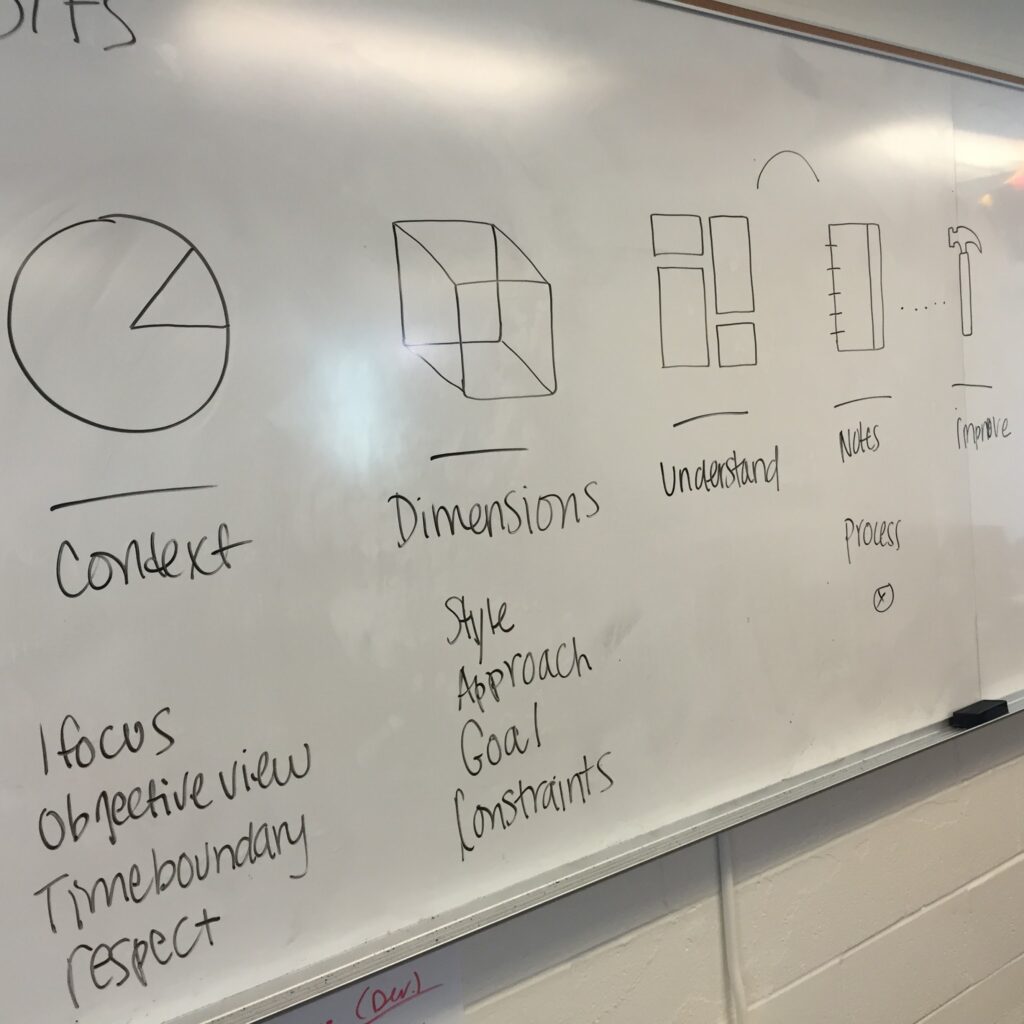 Context
1 focus
Objective view
Time boundary
respect
Dimensions
Style
Approach
Goal
Constraints
Understand
Notes
Process
improve
(Dev.)